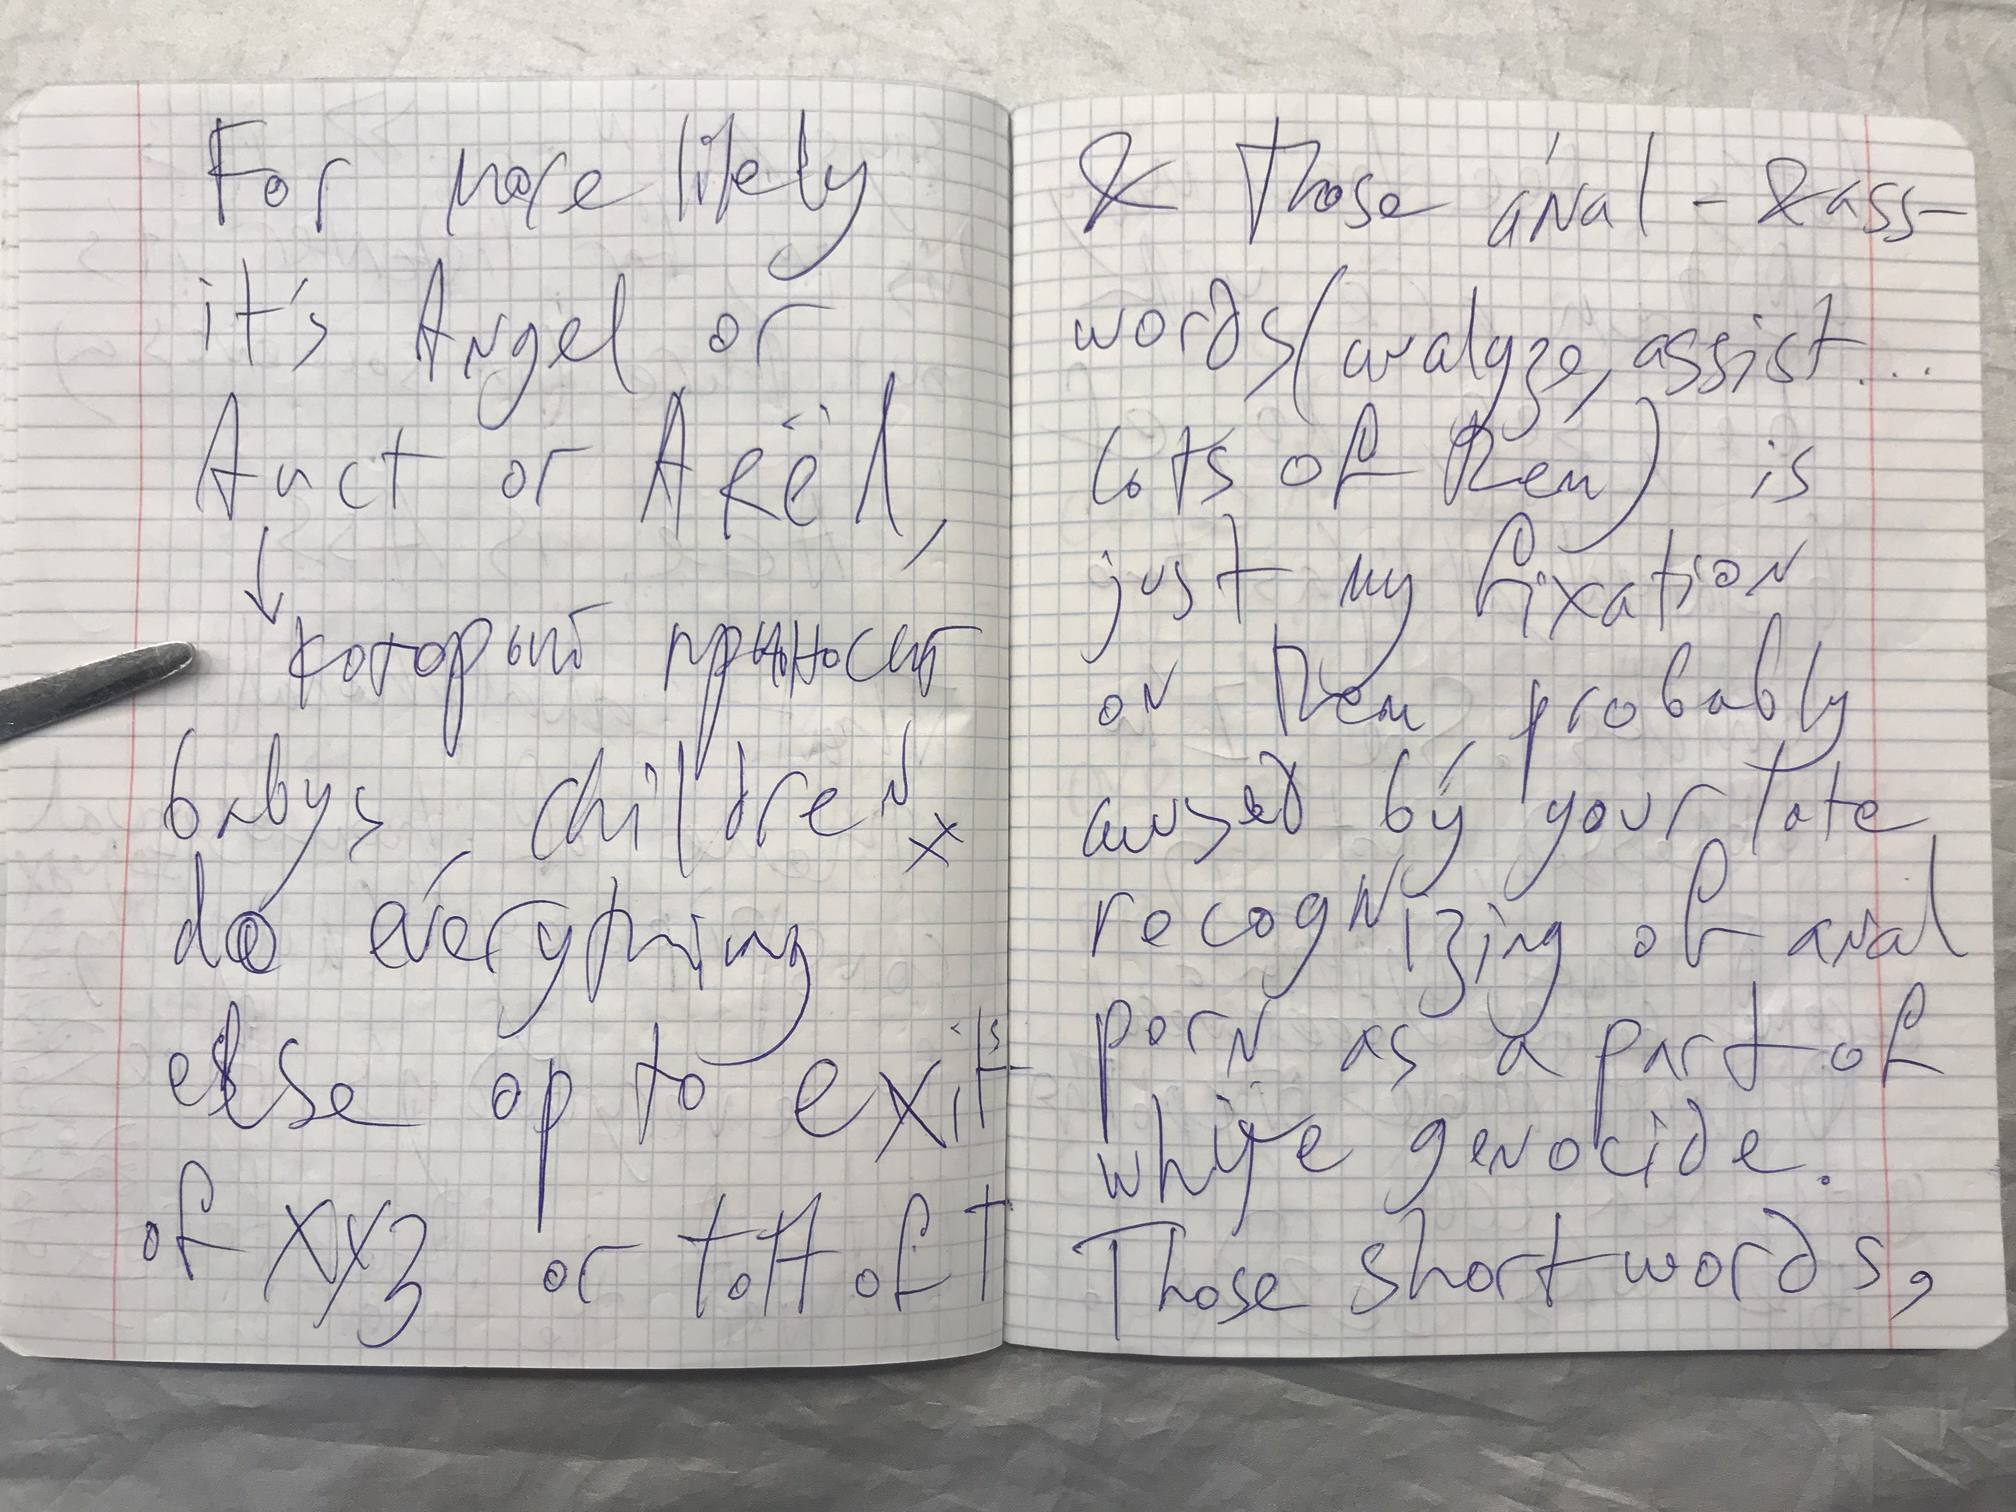 For more likely
it's Angel or
Аист or Аеёl,
который приносит
babys, children
do everything
else op to exits
of xyz or tott of T
& those anal - & ass-
words (analyze, assist...
lots of them) is
just my fixation
on them, probably
caused by your late
recognizing of anal
porn as a part of
white genocide.
Those short words,